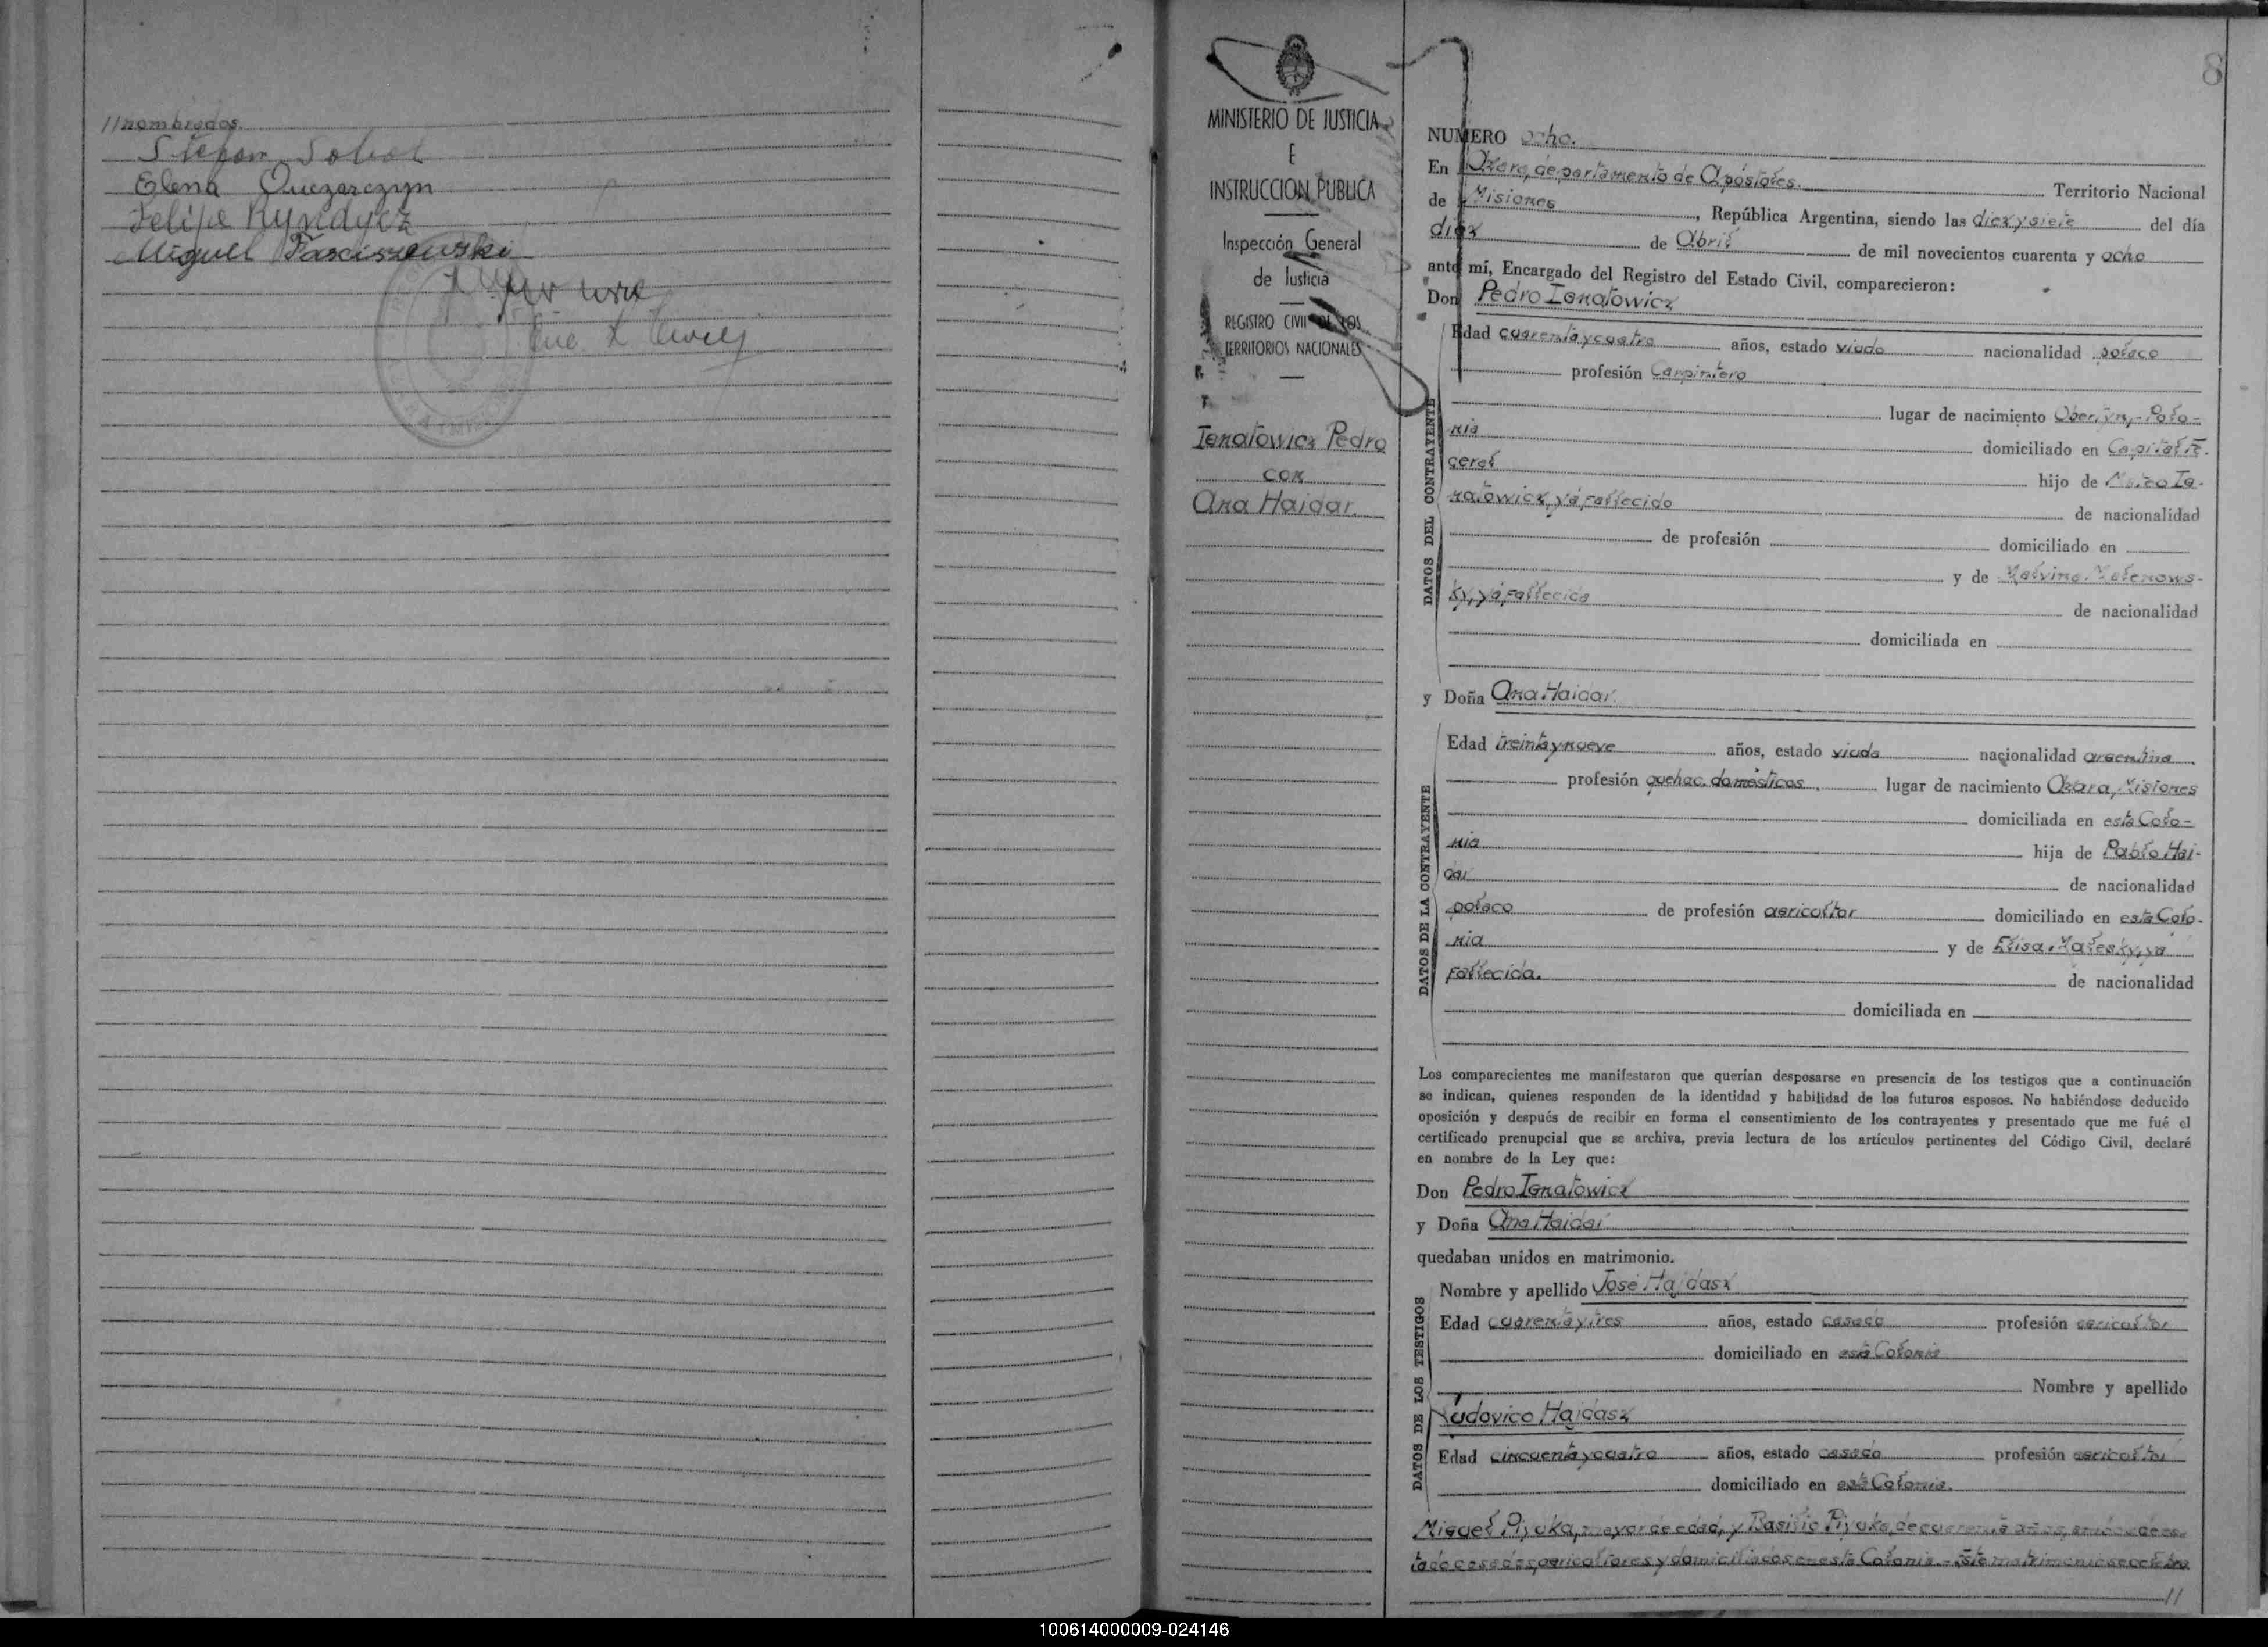 //nombrados.
Stefan Sobol
Elena
Felipe
Miguel
MINISTERIO DE JUSTICIA
E
INSTRUCCION PUBLICA
Inspección General
de Justicia
REGISTRO CIVIL DE LOS
TERRITORIOS NACIONALES
Ignatowicz Pedro
con
Ana Haidar.
8
NUMERO ocho.
En Azara, departamento de Apóstoles. Territorio Nacional
de Misiones, República Argentina, siendo las diez y siete del día
diez de Abril de mil novecientos cuarenta y ocho
ante mí, Encargado del Registro del Estado Civil, comparecieron:
Don Pedro Ignatowicz
DATOS DEL CONTRAYENTE
Edad cuarenta y cuatro años, estado viudo nacionalidad polaco
profesión Carpintero
lugar de nacimiento Obertyn,-Polo-
nia domiciliado en Capital F.
hijo de Mateo Ig-
natowicz, ya fallecido de nacionalidad
de profesión domiciliado en
y de Malvina Malenows-
ky, ya fallecida de nacionalidad
domiciliada en
y Doña Ana Haidar.
DATOS DE LA CONTRAYENTE
Edad treinta y nueve años, estado viuda nacionalidad argentina
profesión quehac. domésticos. lugar de nacimiento Azara, Misiones
domiciliada en esta Colo-
nia hija de Pablo Hai-
dar de nacionalidad
polaco de profesión agricultor domiciliado en esta Colo-
nia y de Elisa Malesky, ya
fallecida. de nacionalidad
domiciliada en
Los comparecientes me manifestaron que querían desposarse en presencia de los testigos que a continuación
se indican, quienes responden de la identidad y habilidad de los futuros esposos. No habiéndose deducido
oposición y después de recibir en forma el consentimiento de los contrayentes y presentado que me fué el
certificado prenupcial que se archiva, previa lectura de los artículos pertinentes del Código Civil, declaré
en nombre de la Ley que:
Don Pedro Ignatowicz
y Doña Ana Haidar
quedaban unidos en matrimonio.
DATOS DE LOS TESTIGOS
Nombre y apellido José Hajdasz
Edad cuarenta y tres años, estado casado profesión agricultor
domiciliado en esta Colonia
Nombre y apellido
Ludovico Hajdasz
Edad cincuenta y cuatro años, estado casado profesión agricultor
domiciliado en esta Colonia.
Miguel Pijuka, mayor de edad, y Basilio Pijuka, de cuarenta años, ambos de es-
tado casados, agricultores y domiciliados en esta Colonia.- Este matrimonio se celebra
//
100614000009-024146